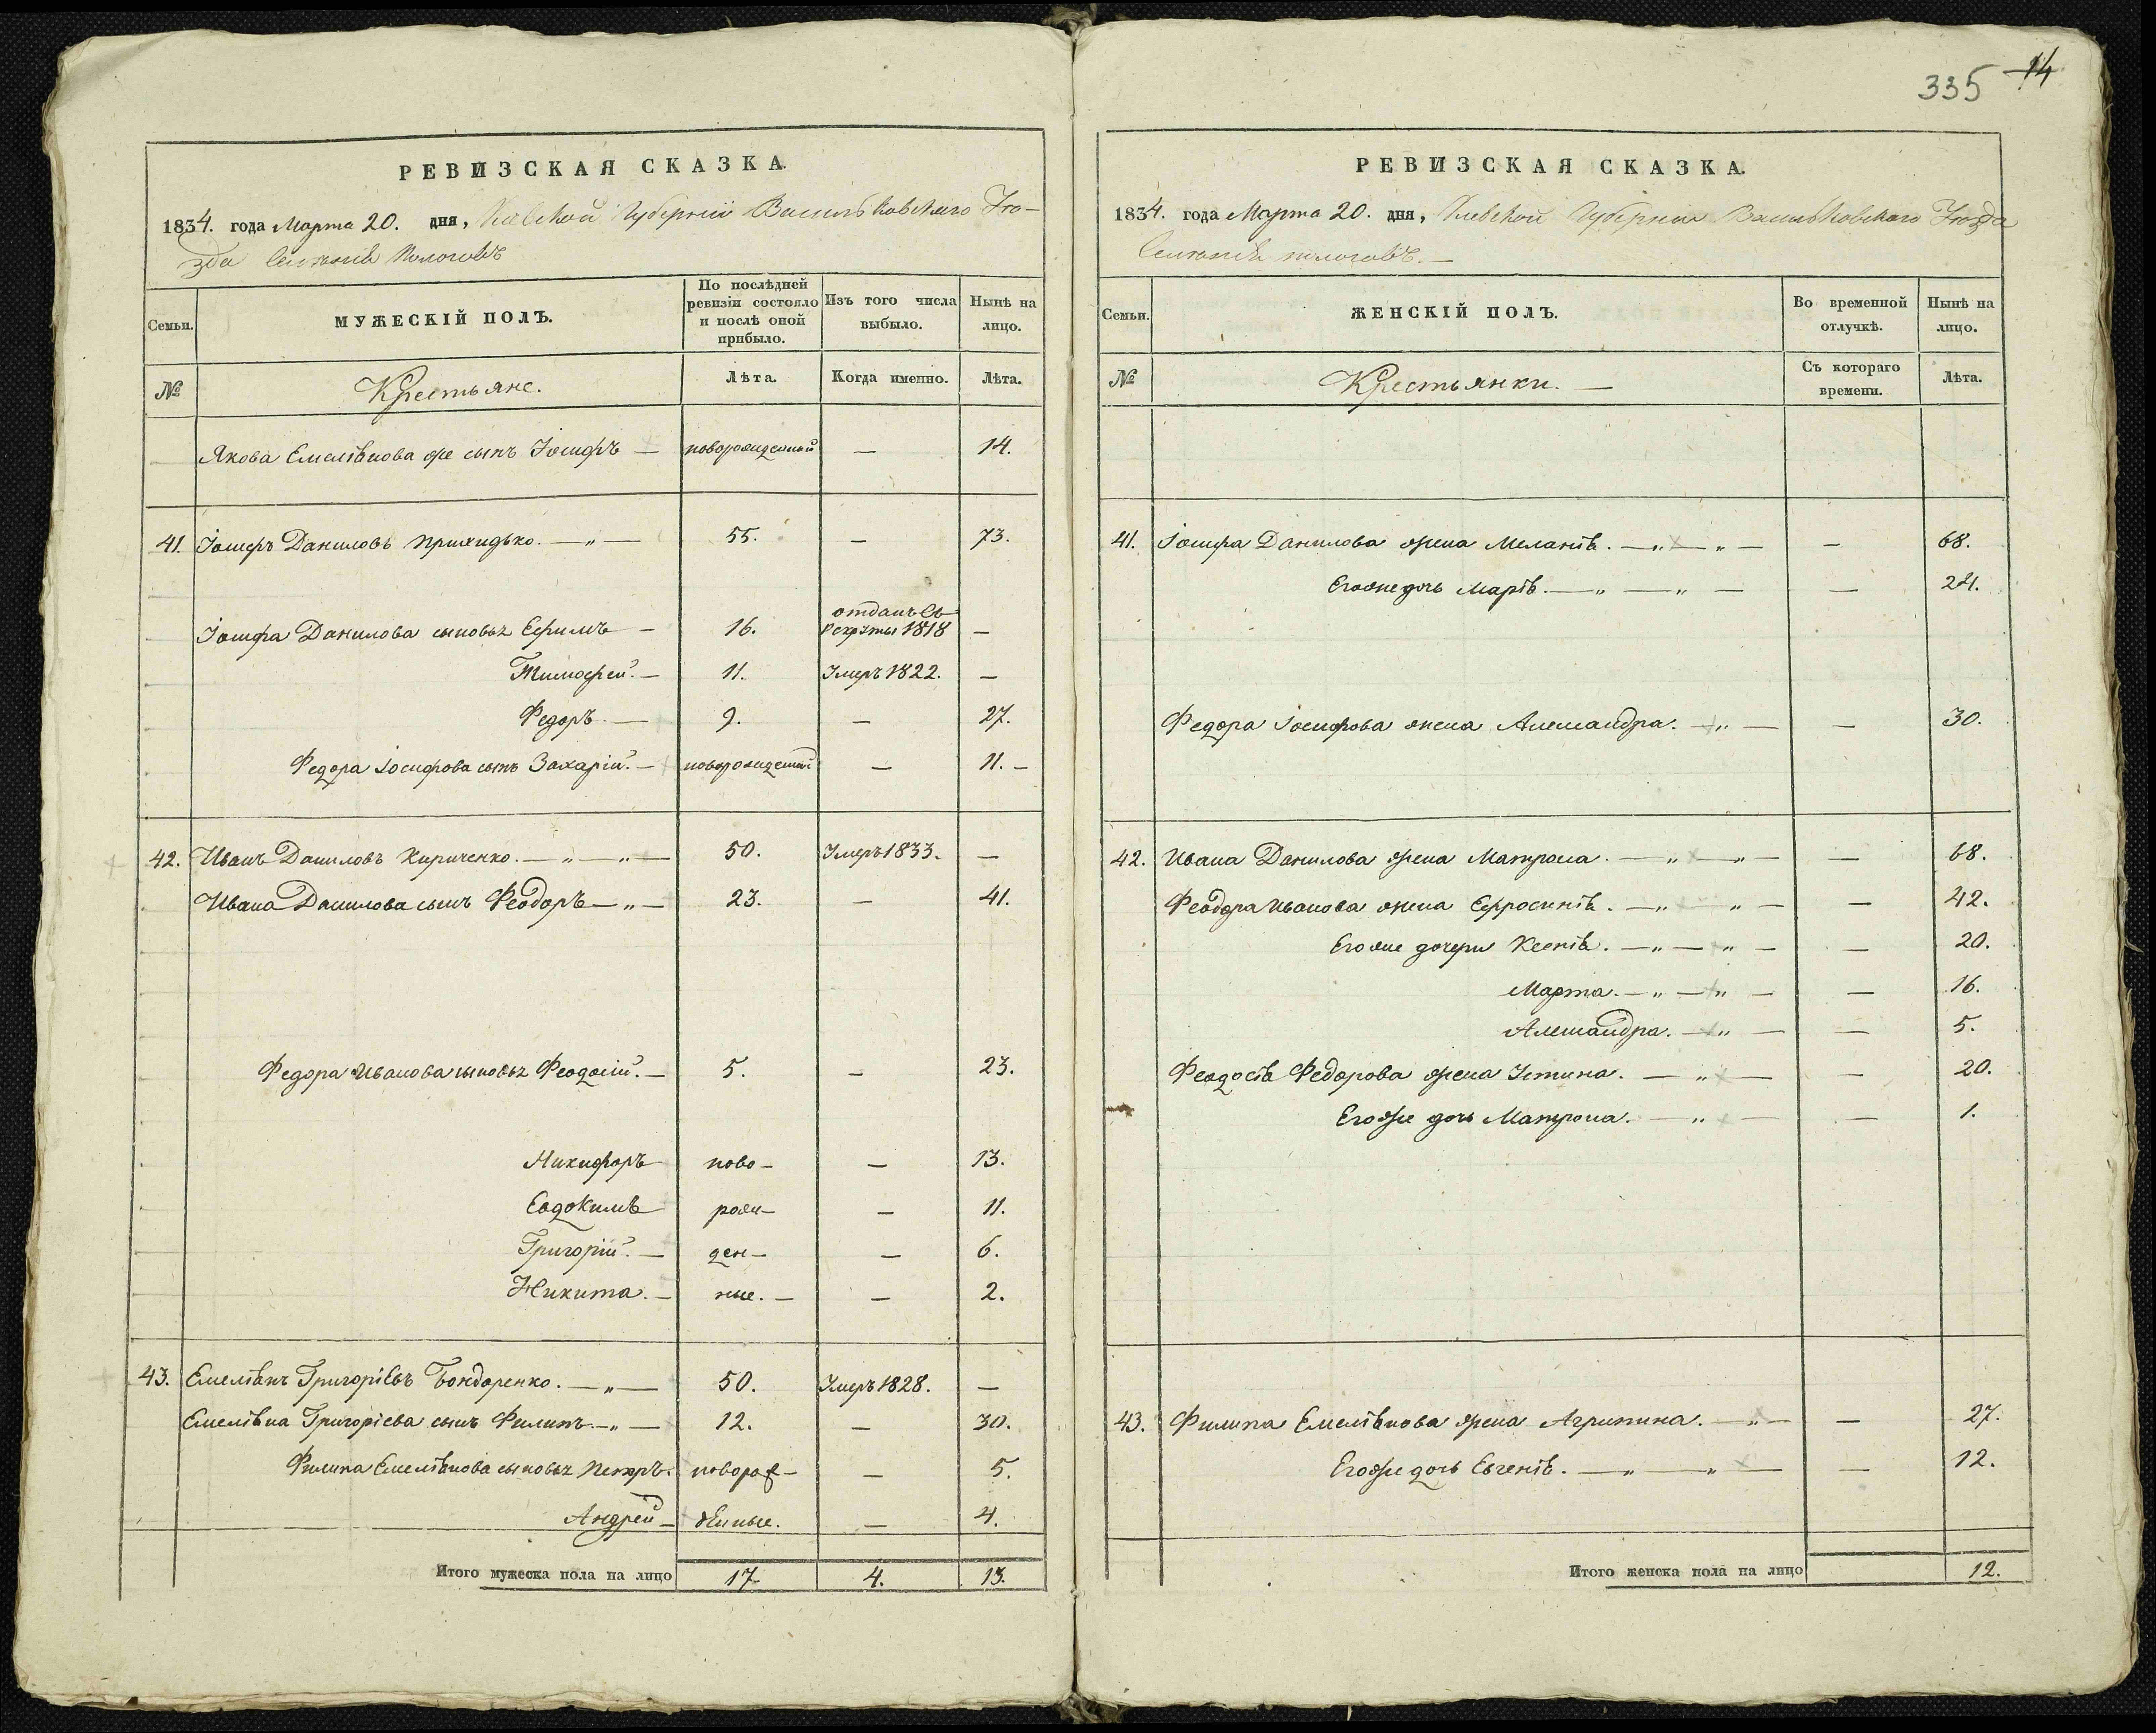 335 14
РЕВИЗСКАЯ СКАЗКА.
1834. года Марта 20. дня, Кіевской Губерніи Васильковскаго Уѣ-
зда Селенія Пологовъ
Семьи.
МУЖЕСКІЙ ПОЛЪ.
По послѣдней ревизіи состояло и послѣ оной прибыло.
Изъ того числа выбыло.
Нынѣ на лицо.
№ Крестьяне. Лѣта. Когда именно. Лѣта.
Якова Емеліянова же сынъ Іосифъ — новорожденный — 14.
41. Іосифъ Даниловъ Приходько. — „ — 55. — 73.
Іосифа Данилова сыновья Ефимъ — 16. отданъ въ рекруты 1818 —
Тимофей. — 11. Умеръ 1822. —
Федоръ. — 9. — 27.
Федора Іосифова сынъ Захарій. — новорожденный — 11. —
42. Иванъ Даниловъ Кириченко. — „ — „ — 50. Умеръ 1833. —
Ивана Данилова сынъ Феодоръ — „ — 23. — 41.
Федора Иванова сыновья Феодосій. — 5. — 23.
Никифоръ ново- — 13.
Евдокимъ рож- — 11.
Григорій. — ден- — 6.
Никита. — ные. — — 2.
43. Емеліянъ Григоріевъ Бондаренко. — „ — 50. Умеръ 1828. —
Емеліяна Григоріева сынъ Филипъ. — „ — 12. — 30.
Филипа Емеліянова сыновья Петръ. новорож- — 5.
Андрей — денные. — 4.
Итого мужеска пола на лицо 17. 4. 13.
РЕВИЗСКАЯ СКАЗКА.
1834. года Марта 20. дня, Кіевской Губерніи Васильковскаго Уѣзда
Селенія Пологовъ. —
Семьи.
ЖЕНСКІЙ ПОЛЪ.
Во временной отлучкѣ.
Нынѣ на лицо.
№ Крестьянки. — Съ котораго времени. Лѣта.
41. Іосифа Данилова жена Меланія. — „ — „ — — 68.
Егоже дочь Марія. — „ — „ — — 21.
Федора Іосифова жена Александра. — „ — — 30.
42. Ивана Данилова жена Матрона. — „ — „ — — 68.
Феодора Иванова жена Ефросинія. — „ — „ — — 42.
Егоже дочери Ксенія. — „ — „ — — 20.
Марта. — „ — „ — — 16.
Александра. — „ — — 5.
Феодосія Федорова жена Устина. — „ — — 20.
Егоже дочь Матрона. — „ — — 1.
43. Филипа Емеліянова жена Агрипина. — „ — — 27.
Егоже дочь Евгенія. — „ — „ — — 12.
Итого женска пола на лицо 12.